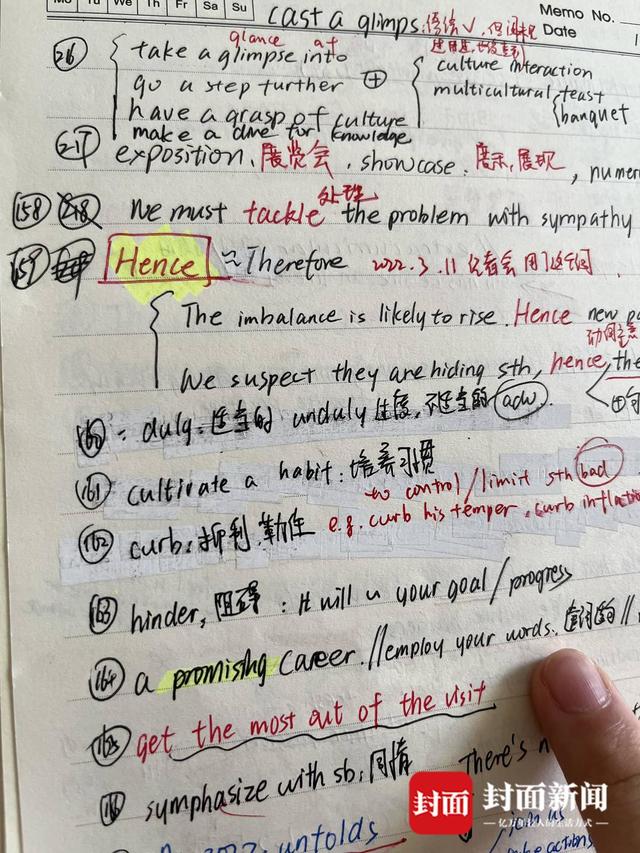 Mo Tu We Th Fr Sa Su
Memo No.
Date
cast a glimps
glance at
take a glimpse into
go a step further
have a grasp of culture
make a dive for knowledge
culture interaction
multicultural feast
banquet
exposition. 展览会. showcase: 展示, 展现
处理
158 We must tackle the problem with sympathy
159 Hence ≈ Therefore 2022.3.11 记者会用了这个词
The imbalance is likely to rise. Hence new
We suspect they are hiding sth, hence, the
160 duly: 适当的 unduly 过度, 不适当的 adv.
161 cultivate a habit: 培养习惯
to control/limit sth bad
162 curb: 抑制 e.g. curb his temper, curb inflation
163 hinder, 阻碍: It will u your goal/progress
164 a promising career. //employ your words.
165 get the most out of the visit
symphasize with sb: 同情
There's
unfolds
封面
封面新闻
亿万年轻人的生活方式